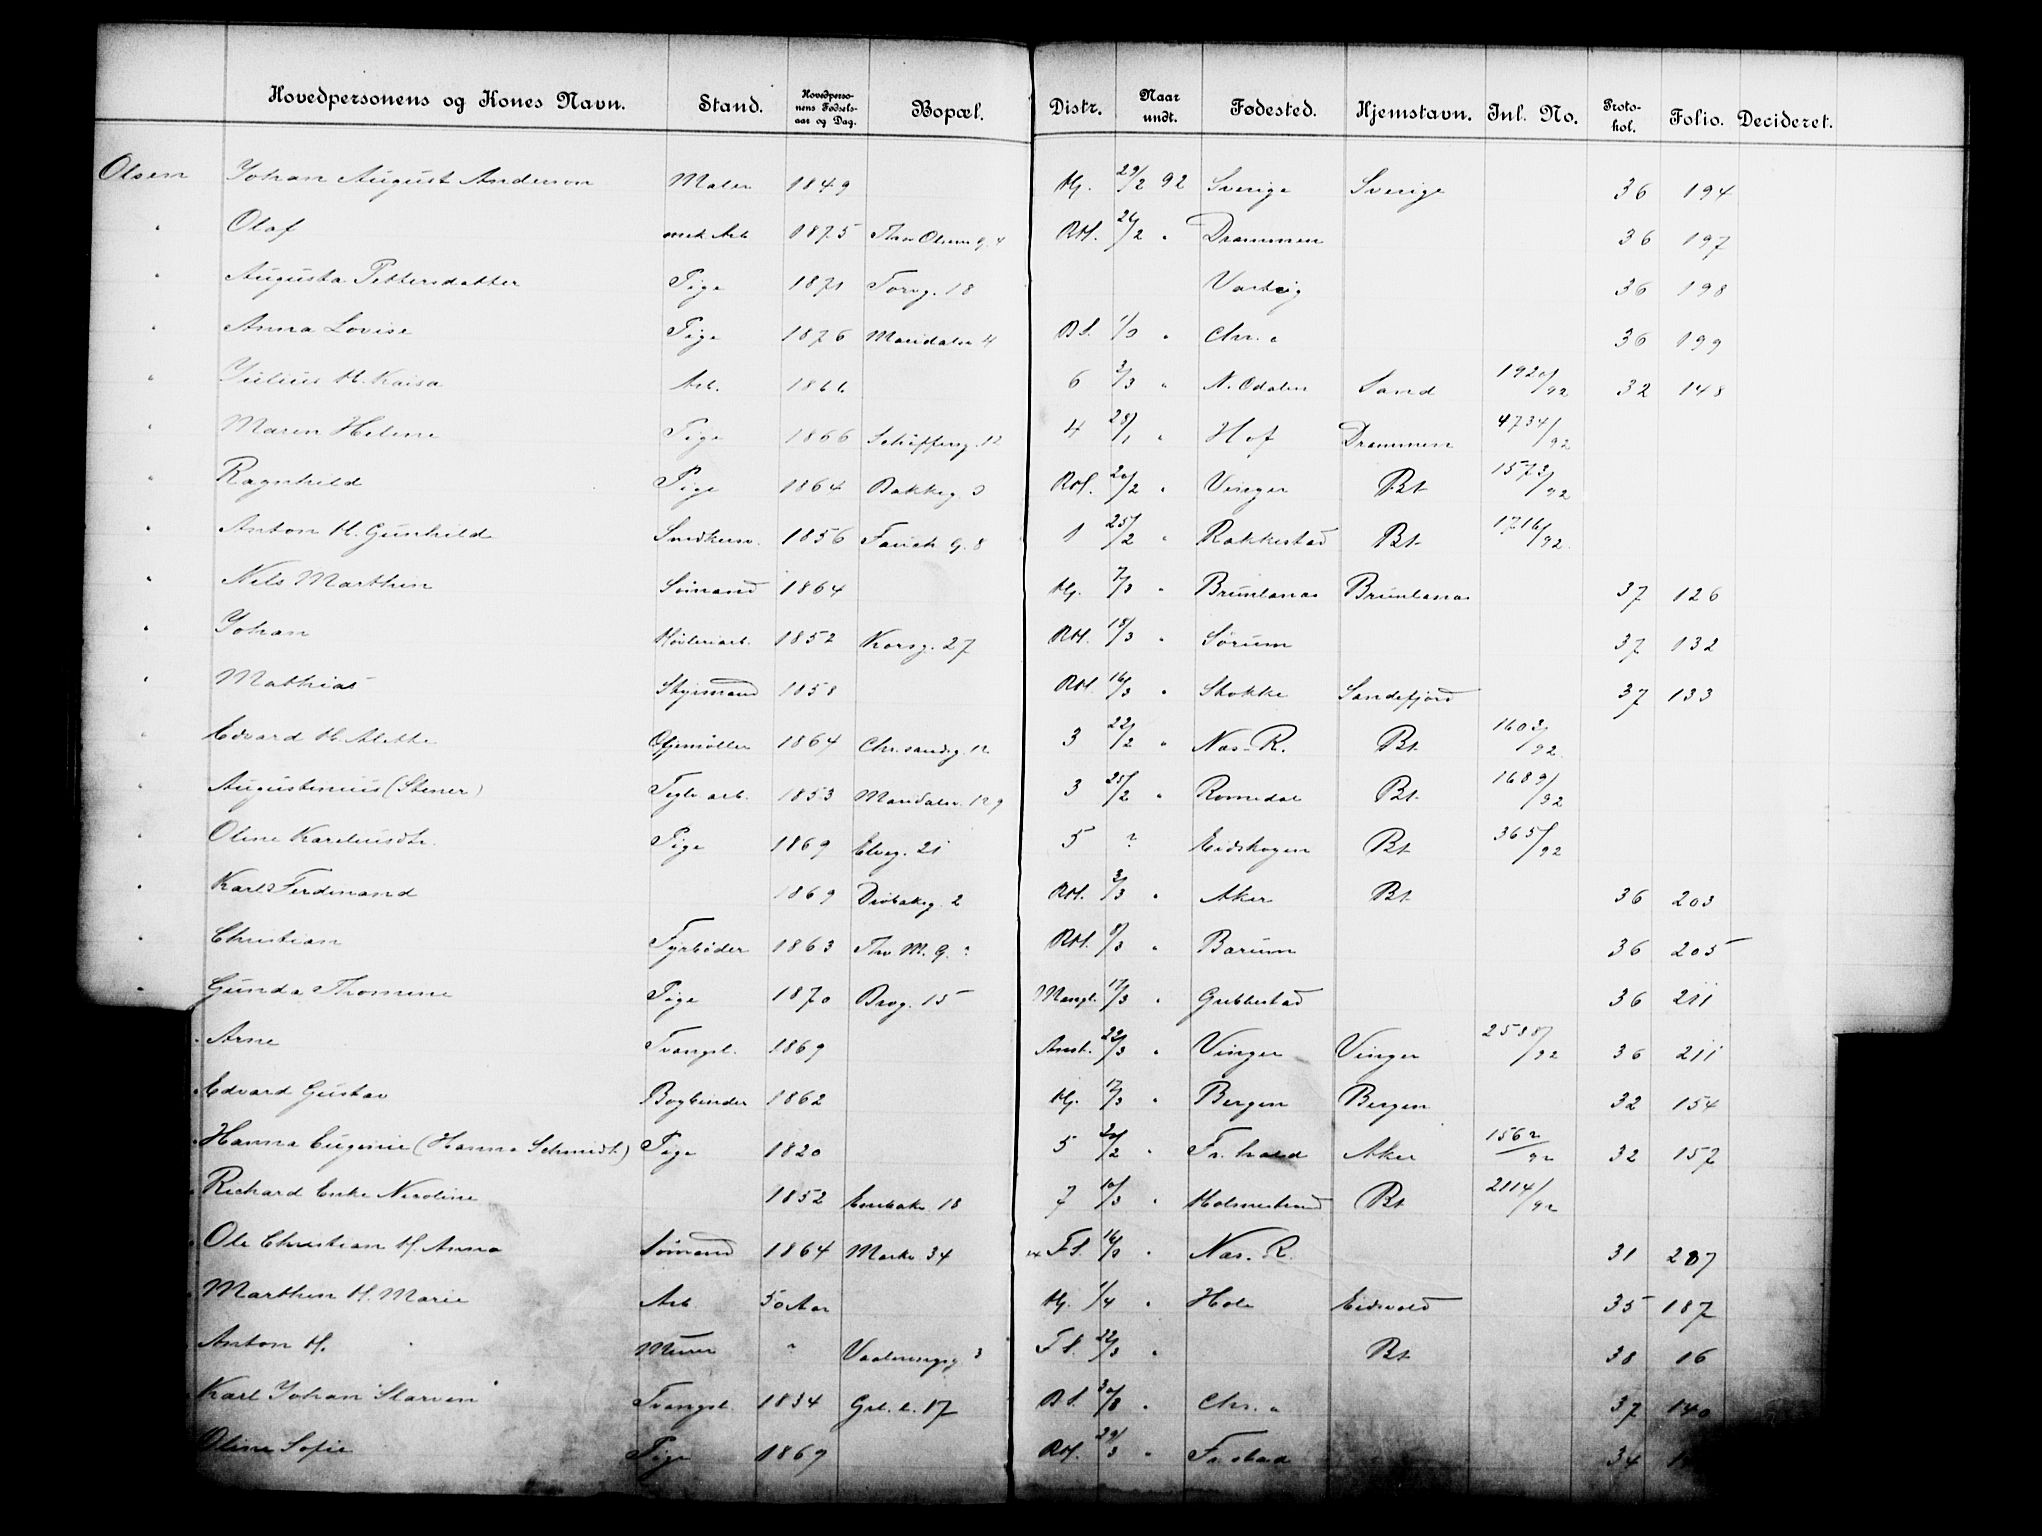 Hovedpersonens og Kones Navn. Stand. Hovedpersonens Fødselsaar og Dag. Bopæl. Distr. Naar undt. Fødested. Hjemstavn. Inl. No. Protokol. Folio. Decideret.
Olsen Johan August Anderson Maler 1849 Hj. 29/2 92 Sverige Sverige 36 194
" Olaf mek Arb 1875 Thv Olsens g. 4 RH. 26/2 " Drammen 36 197
" Augusta Pettersdatter Pige 1871 Torvg. 18 Varteig 36 198
" Anna Lovise Pige 1876 Maridalsv 4 BS. 1/3 " Chr.a 36 199
" Julius H. Kaisa Arb. 1866 6 3/3 " N. Odalen Sand 1920/92 32 148
" Maren Helene Pige 1866 Schifterg. 12 4 28/1 " Hof Drammen 4734/92
" Ragnhild Pige 1864 Bakkeg 3 RH. 20/2 " Vinger Bt 1573/92
" Anton H. Gunhild Snedkersv. 1856 g. 8 1 25/2 " Rakkestad Bt 1716/92.
" Nels Marthin Sømand 1864 Hj. 7/3 " Brunlanas Brunlanas 37 126
" Johan Høvleriarb. 1852 Korsg. 27 RH. 18/3 " Sørum 37 132
" Mathias Styrmand 1858 RH. 16/3 " Stokke Sandefjord 37 133
" Edvard H. Alette 1864 Chr.sandsg. 12 3 22/2 " Nas-R. Bt 1603/92
" Augustinius (Stener) Teglv arb. 1853 Maridalsv. 129 3 25/2 " Romedal Bt 1689/92
" Oline Kareliusdtr. Pige 1869 Elveg. 21 5 ? Eidskogen Bt 365/92
" Karl Ferdinand 1869 Drøbaksg. 2 RH. 3/3 " Aker Bt 36 203
" Christian Fyrbøder 1863 Thv M. g. ? RH. 9/3 " Barum 36 205
" Gunda Thomine Pige 1870 Brog. 15 Mangl. 17/3 " Grebbestad 36 211
" Arne Tvangsl. 1869 Anst. 22/3 " Vinger Vinger 2538/92 36 211
" Edvard Gustav Bogbinder 1862 Hj. 17/3 " Bergen Bergen 32 154
" Hanna Eugenie (Hanna Schmidt) Pige 1820 5 20/2 " Fr.hald Aker 1562/92 32 157
" Richard Enke Nicoline 1852 Enebakv 18 7 10/3 " Holmestrand Bt 2114/92
" Ole Christian H. Anna Sømand 1864 Markv 34 FS. 16/3 " Nas-R. 31 287
" Marthin H. Marie Arb 50 Aar Hj. 1/4 " Hole Eidsvold 35 187
" Anton H. " Murer " Vaalerenggg 3 FS. 22/3 " Bt 38 16
" Karl Johan "Slarven" Tvangsl. 1834 Grl. l. 17 BS. 30/8 " Chr.a 37 140
Oline Sofie Pige 1869 RH. 29/3 " Fr.stad 34